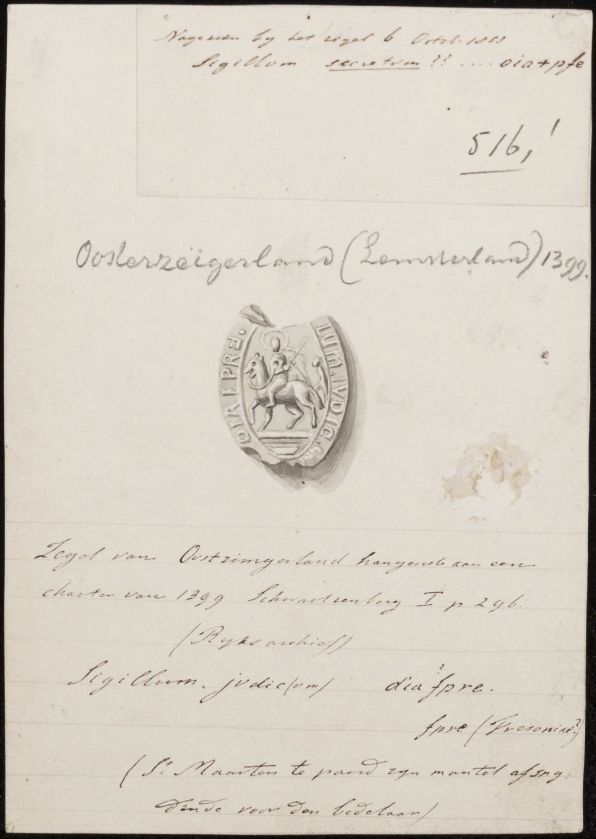 Nagezien by het zegel 6 Octob 1888
Sigillum secretum ?? .... oia+pfe
516,1
Oosterzeigerland (Lemsterland) 1399.
LUM. IVDIC
OIR EPRE.
Zegel van Oostzimgerland hangende aan een
charter van 1399 Schwartzenberg I p 296.
(Ryksarchief)
Sigillum. jvdic(vm) dia? fpre.
fpre (Fresoniae?)
(St Maarten te paard zyn mantel afsny
dende voor den bedelaar)